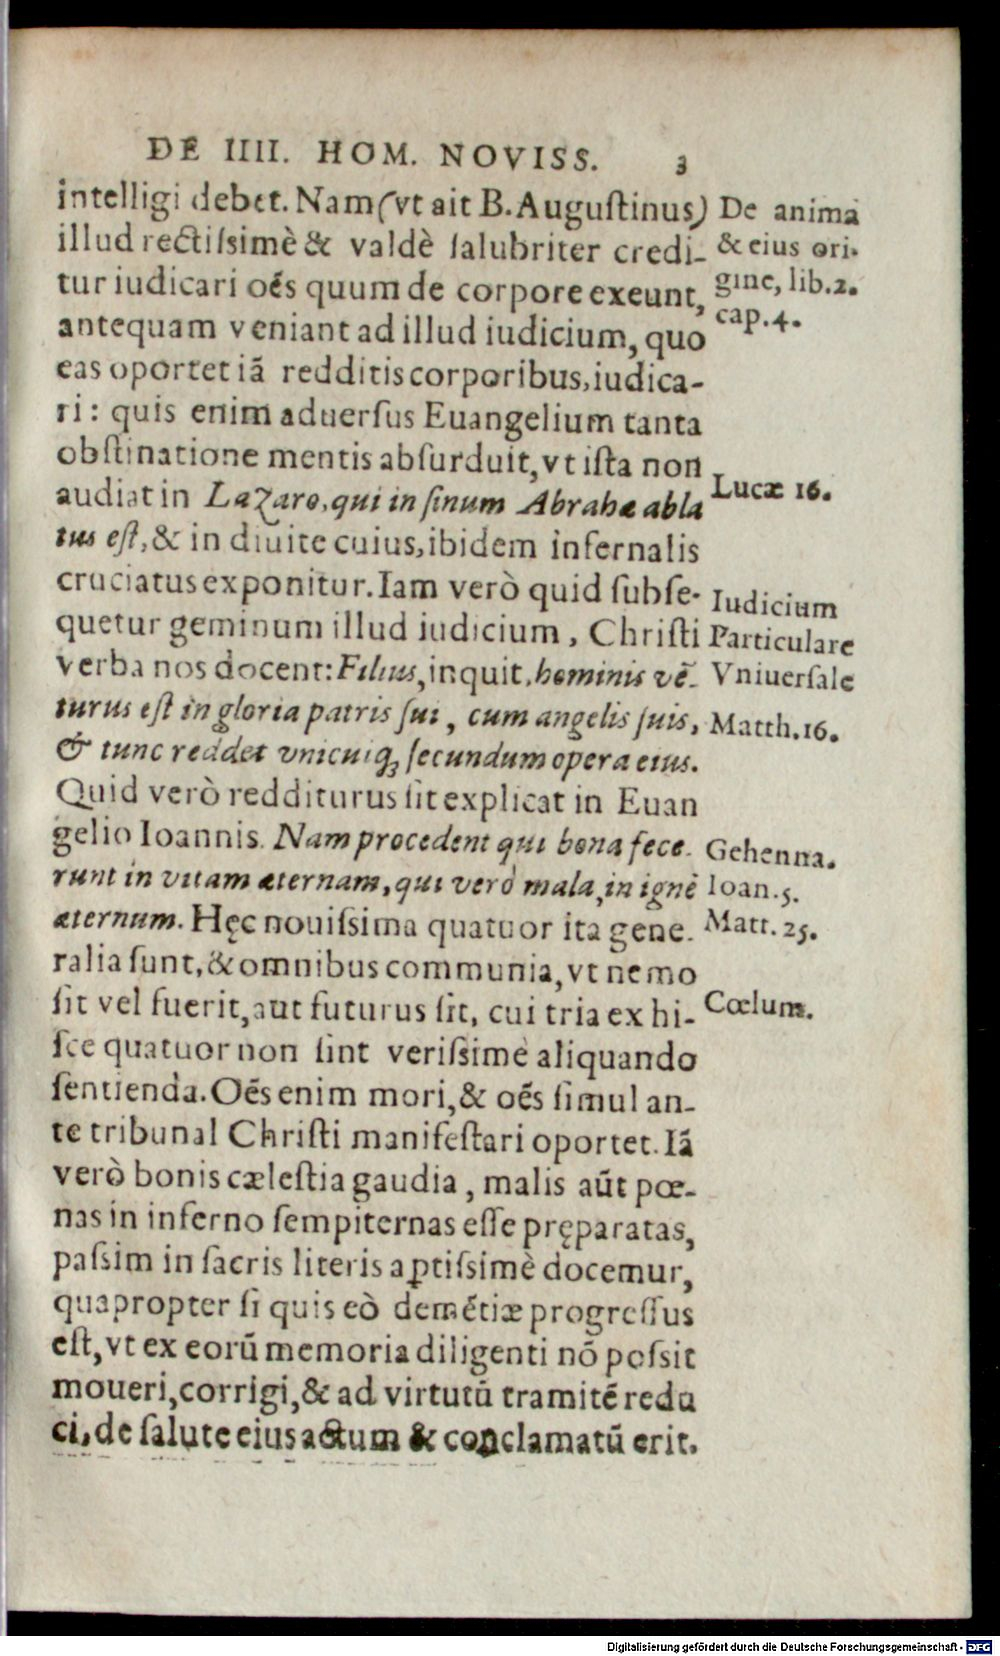 DE IIII. HOM. NOVISS. 3
intelligi debet. Nam (vt ait B. Auguſtinus)
illud rectiſsimè & valdè ſalubriter credi-
tur iudicari oẽs quum de corpore exeunt,
antequam veniant ad illud iudicium, quo
eas oportet iã redditis corporibus, iudica-
ri: quis enim aduerſus Euangelium tanta
obſtinatione mentis abſurduit, vt iſta non
audiat in Lazaro, qui in ſinum Abrahæ abla
tus eſt, & in diuite cuius, ibidem infernalis
cruciatus exponitur. Iam verò quid ſubſe-
quetur geminum illud iudicium, Chriſti
verba nos docent: Filius, inquit, hominis vẽ-
turus eſt in gloria patris ſui, cum angelis ſuis,
& tunc reddet vnicuiq; ſecundum opera eius.
Quid verò redditurus ſit explicat in Euan
gelio Ioannis. Nam procedent qui bona fece-
runt in vitam æternam, qui verò mala, in ignẽ
æternum. Hęc nouiſsima quatuor ita gene-
ralia ſunt, & omnibus communia, vt nemo
ſit vel fuerit, aut futurus ſit, cui tria ex hi-
ſce quatuor non ſint veriſsimè aliquando
ſentienda. Oẽs enim mori, & oẽs ſimul an-
te tribunal Chriſti manifeſtari oportet. Iã
verò bonis cæleſtia gaudia, malis aũt pœ-
nas in inferno ſempiternas eſſe pręparatas,
paſsim in ſacris literis aꝑtiſsimè docemur,
quapropter ſi quis eò demẽtiæ progreſſus
eſt, vt ex eorũ memoria diligenti nõ poſsit
moueri, corrigi, & ad virtutũ tramitẽ redu
ci, de ſalute eius actum & conclamatũ erit.
De anima
& eius ori-
gine, lib. 2.
cap. 4.
Lucæ 16.
Iudicium
Particulare
Vniuerſale
Matth. 16.
Gehenna.
Ioan. 5.
Matt. 25.
Cœlum.
Digitalisierung gefördert durch die Deutsche Forschungsgemeinschaft - DFG